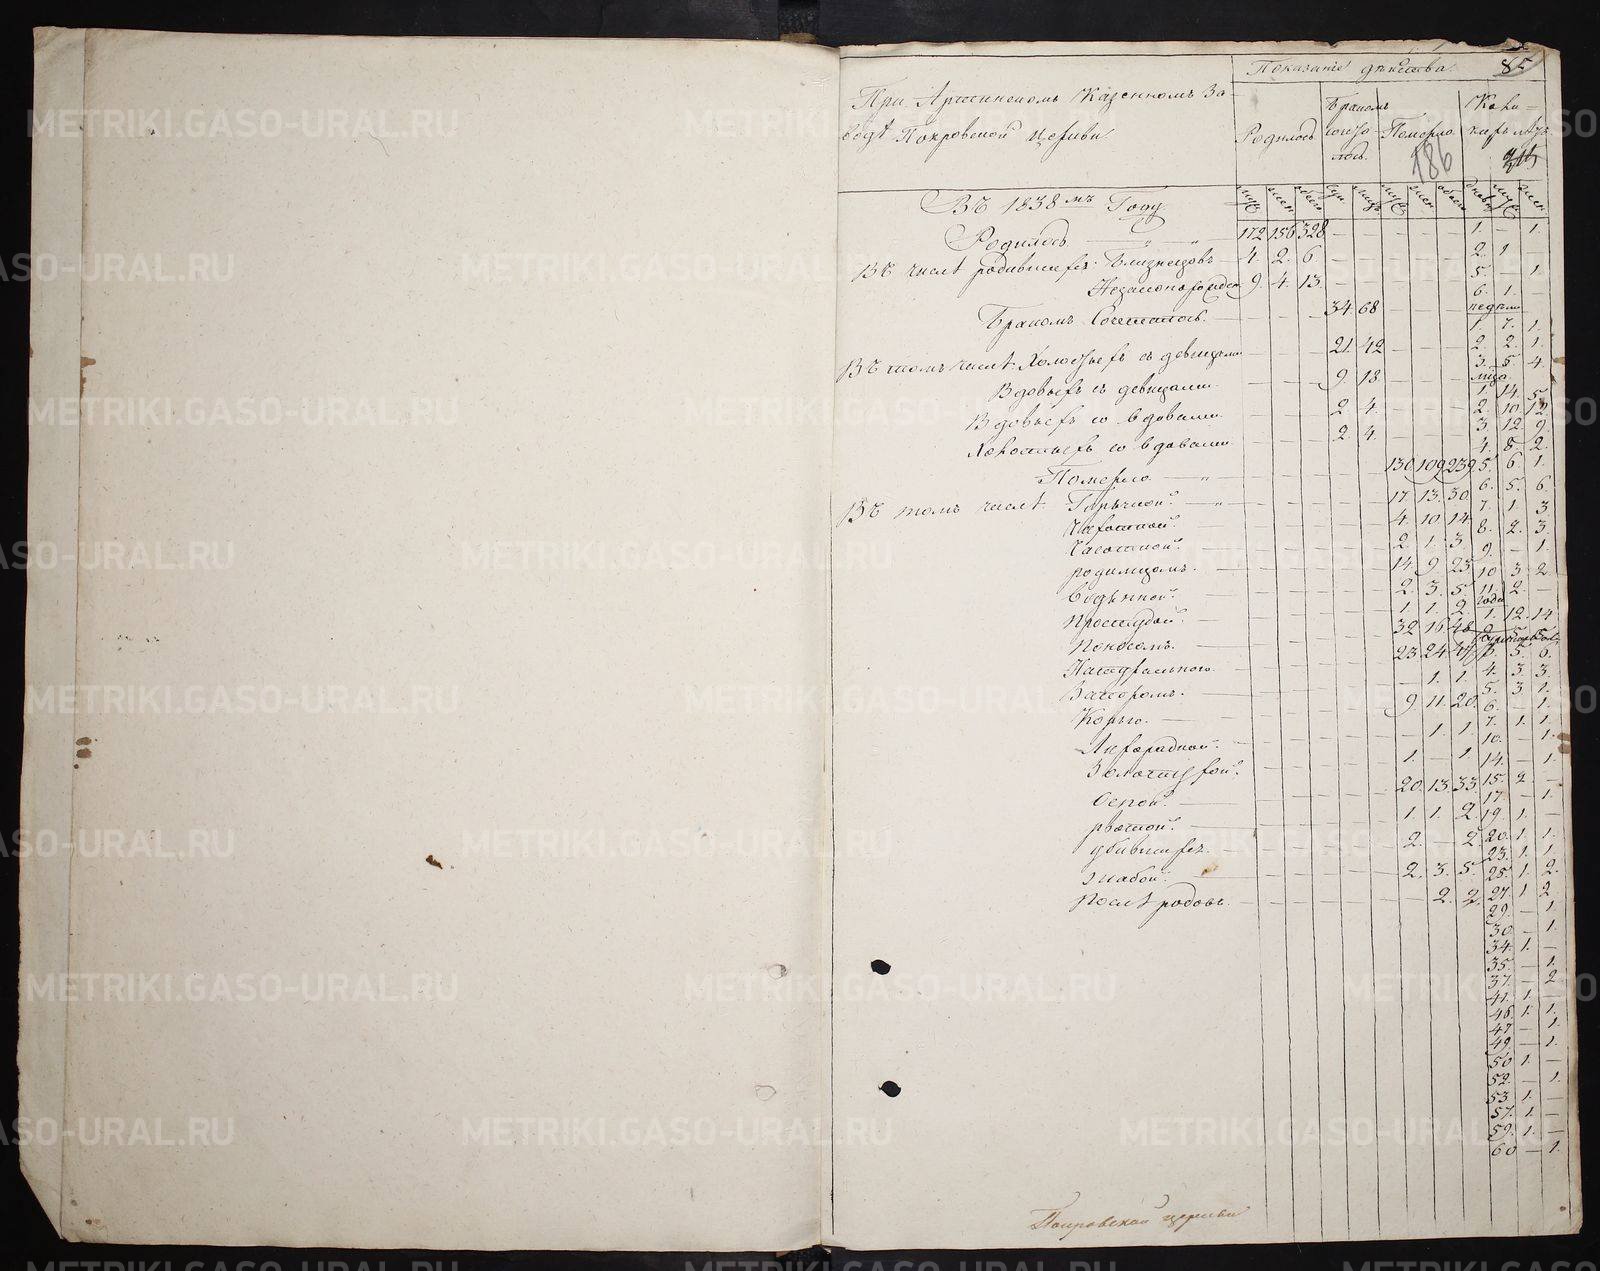 Показанiе дѣйства. 85
При Артинскомъ Казенномъ За-
водѣ Покровской церкви.
Родилось
Бракомъ
Померло
186
Въ 1838мъ Году
муж. жен. обоего
Родилось 172 156 328 — — — — — 1. — 1.
Въ числѣ родившихся: Близнецовъ 4. 2. 6. — — — — — 2. 1
5. — 1.
Незаконорожден 9. 4. 13. — — — — — 6. 1. —
недѣли
Бракомъ Сочеталось. — — — 34. 68 — — — 1. 7. 1.
2. 2. 1.
Въ томъ числѣ Холостыхъ съ девицами — — — 21. 42 — — — 3. 5. 4
Вдовыхъ съ девицами. — — — 9. 18. — — — 1. 14. 5.
Вдовыхъ со вдовами. — — — 2. 4. — — — 2. 10. 12.
3. 12. 9.
Холостыхъ со вдовами — — — 2. 4. — — — 4. 8. 2.
Померло — 130. 109. 239. 5. 6. 1.
Въ томъ числѣ Горячкой 17. 13. 30. 6. 5. 6
7. 1. 3
Чахоткой 4. 10. 14. 8. 2. 3.
2. 1. 3. 9. — 1.
родимцомъ. 14. 9. 23. 10. 3. 2.
водяной 2. 3. 5. 11. 2. —
года
Простудой 1. 1. 2. 1. 12. 14
Поносомъ. 32. 16. 48.
23. 24. 47. 5. 6.
4. 3 3.
Запоромъ. — 1. 1. 5. 3 1.
Корью. 9. 11. 20. 6. — 1.
7. 1. 1.
Лихорадкой. — 1. 1. 10. — 1.
Золотухой. 1. — 1. 14. — 1.
Оспой. 20. 13. 33. 15. 2. —
17. — 1.
рвотой. 1. 1. 2. 19. 1. —
убившихся. 2. — 2. 20. 1. 1.
23. 1. 1.
2. 3. 5. 25. 1. 2.
Послѣ родовъ. — 2. 2. 27. 1 2.
29. — 1.
30. — 1.
34. 1. —
35. — 1.
37. — 2
41. 1. —
46. 1. 1.
47. — 1.
49. — 1.
50 1. —
52. — 1.
53. 1. —
57. 1. —
59. 1. —
60 — 1.
Покровской церкви
METRIKI.GASO-URAL.RU